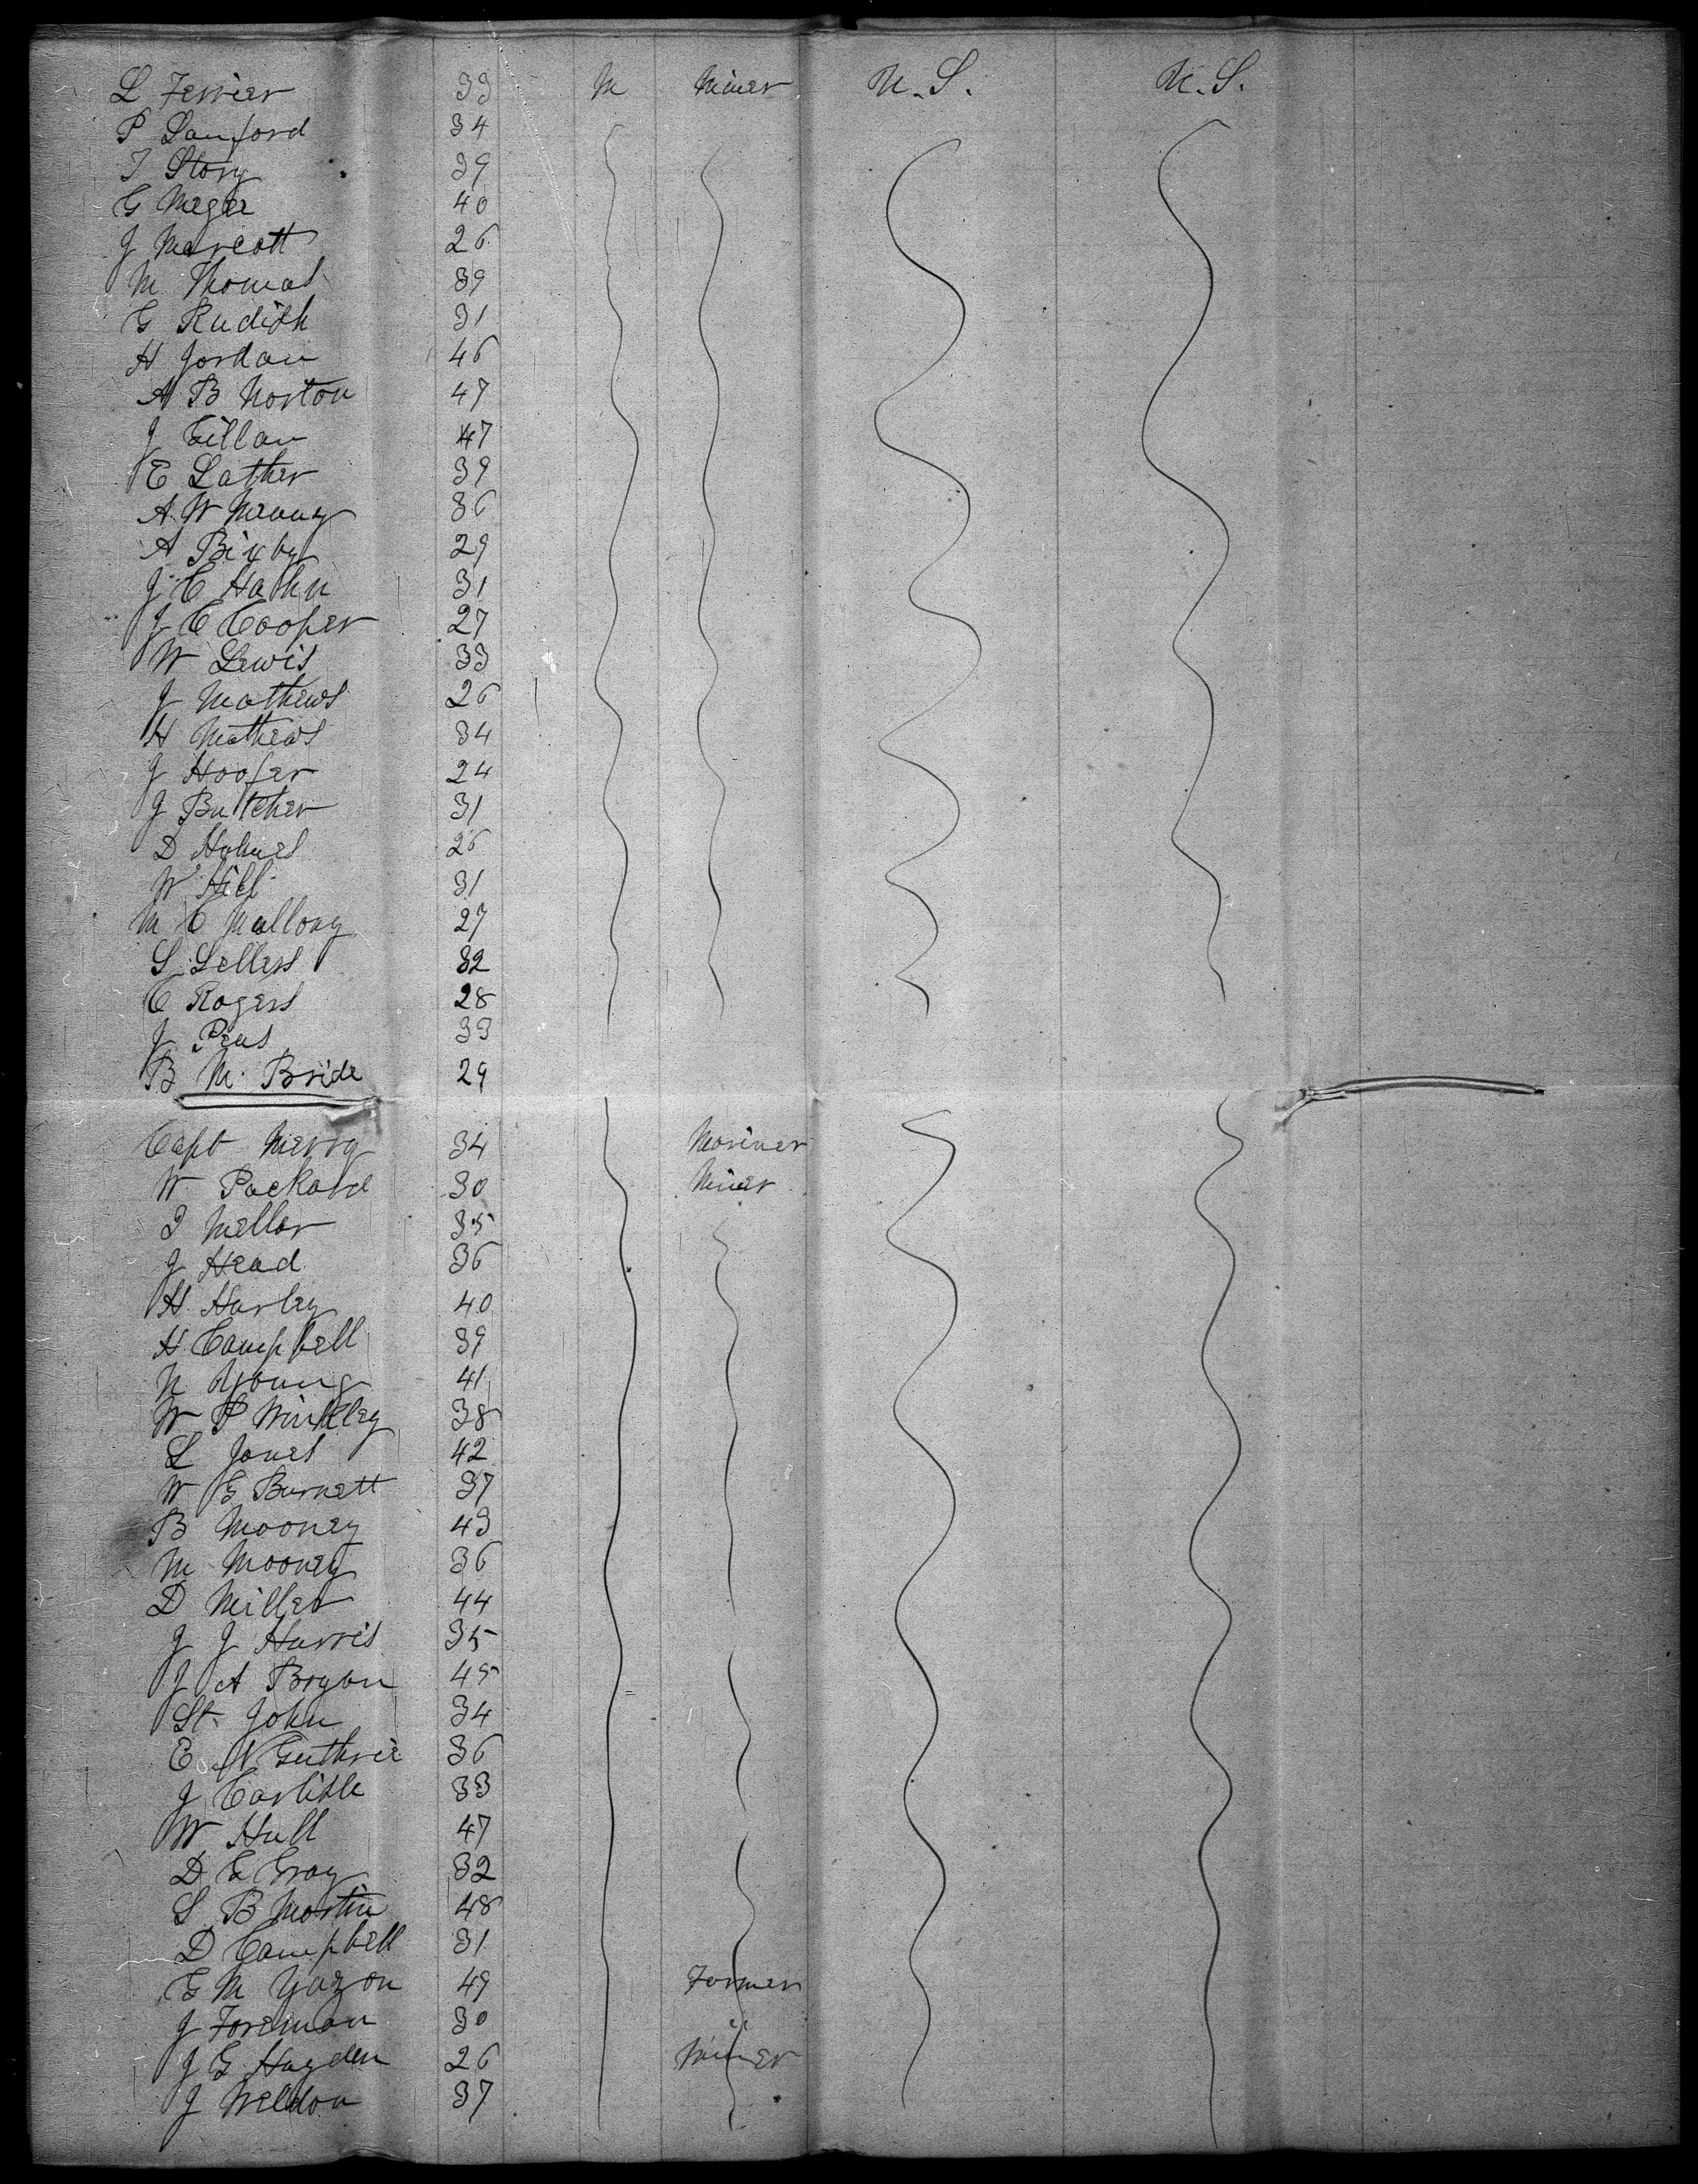 L Ferrier 33 M Miner U.S. U.S.
P Lanford 34
T Story 39
G Megee 40
J Marcott 26
M Thomas 39
G Rudish 31
H Jordan 46
A B Norton 47
J Gillan 47
E Lather 39
A. W Meaney 36
A Bixby 29
J C Hahn 31
J C Cooper 27
W Lewis 33
J Mathews 26
H Mathews 34
J Hoofer 24
J Butcher 31
D Holmes 26
W Hill 31
M C Mallony 27
S Sellers 32
C Rogers 28
J 33
B Mc Bride 29
Capt Merry 34 Mariner
W Packard 30 Miner
J Mellor 35
J Head 36
H Harley 40
H Campbell 39
N Young 41
W P Winkley 38
L Jones 42
W G Burnett 37
B Mooney 43
M Mooney 36
D Miller 44
J J Harris 35
J A Bryan 45
St John 34
E W Guthrie 36
J Carlisle 33
W Hall 47
D C Gray 32
S B Martin 48
D Campbell 31
G M Yazon 49 Farmer
J Foreman 30 "
J G Hayden 26 Miner
J Weldon 37